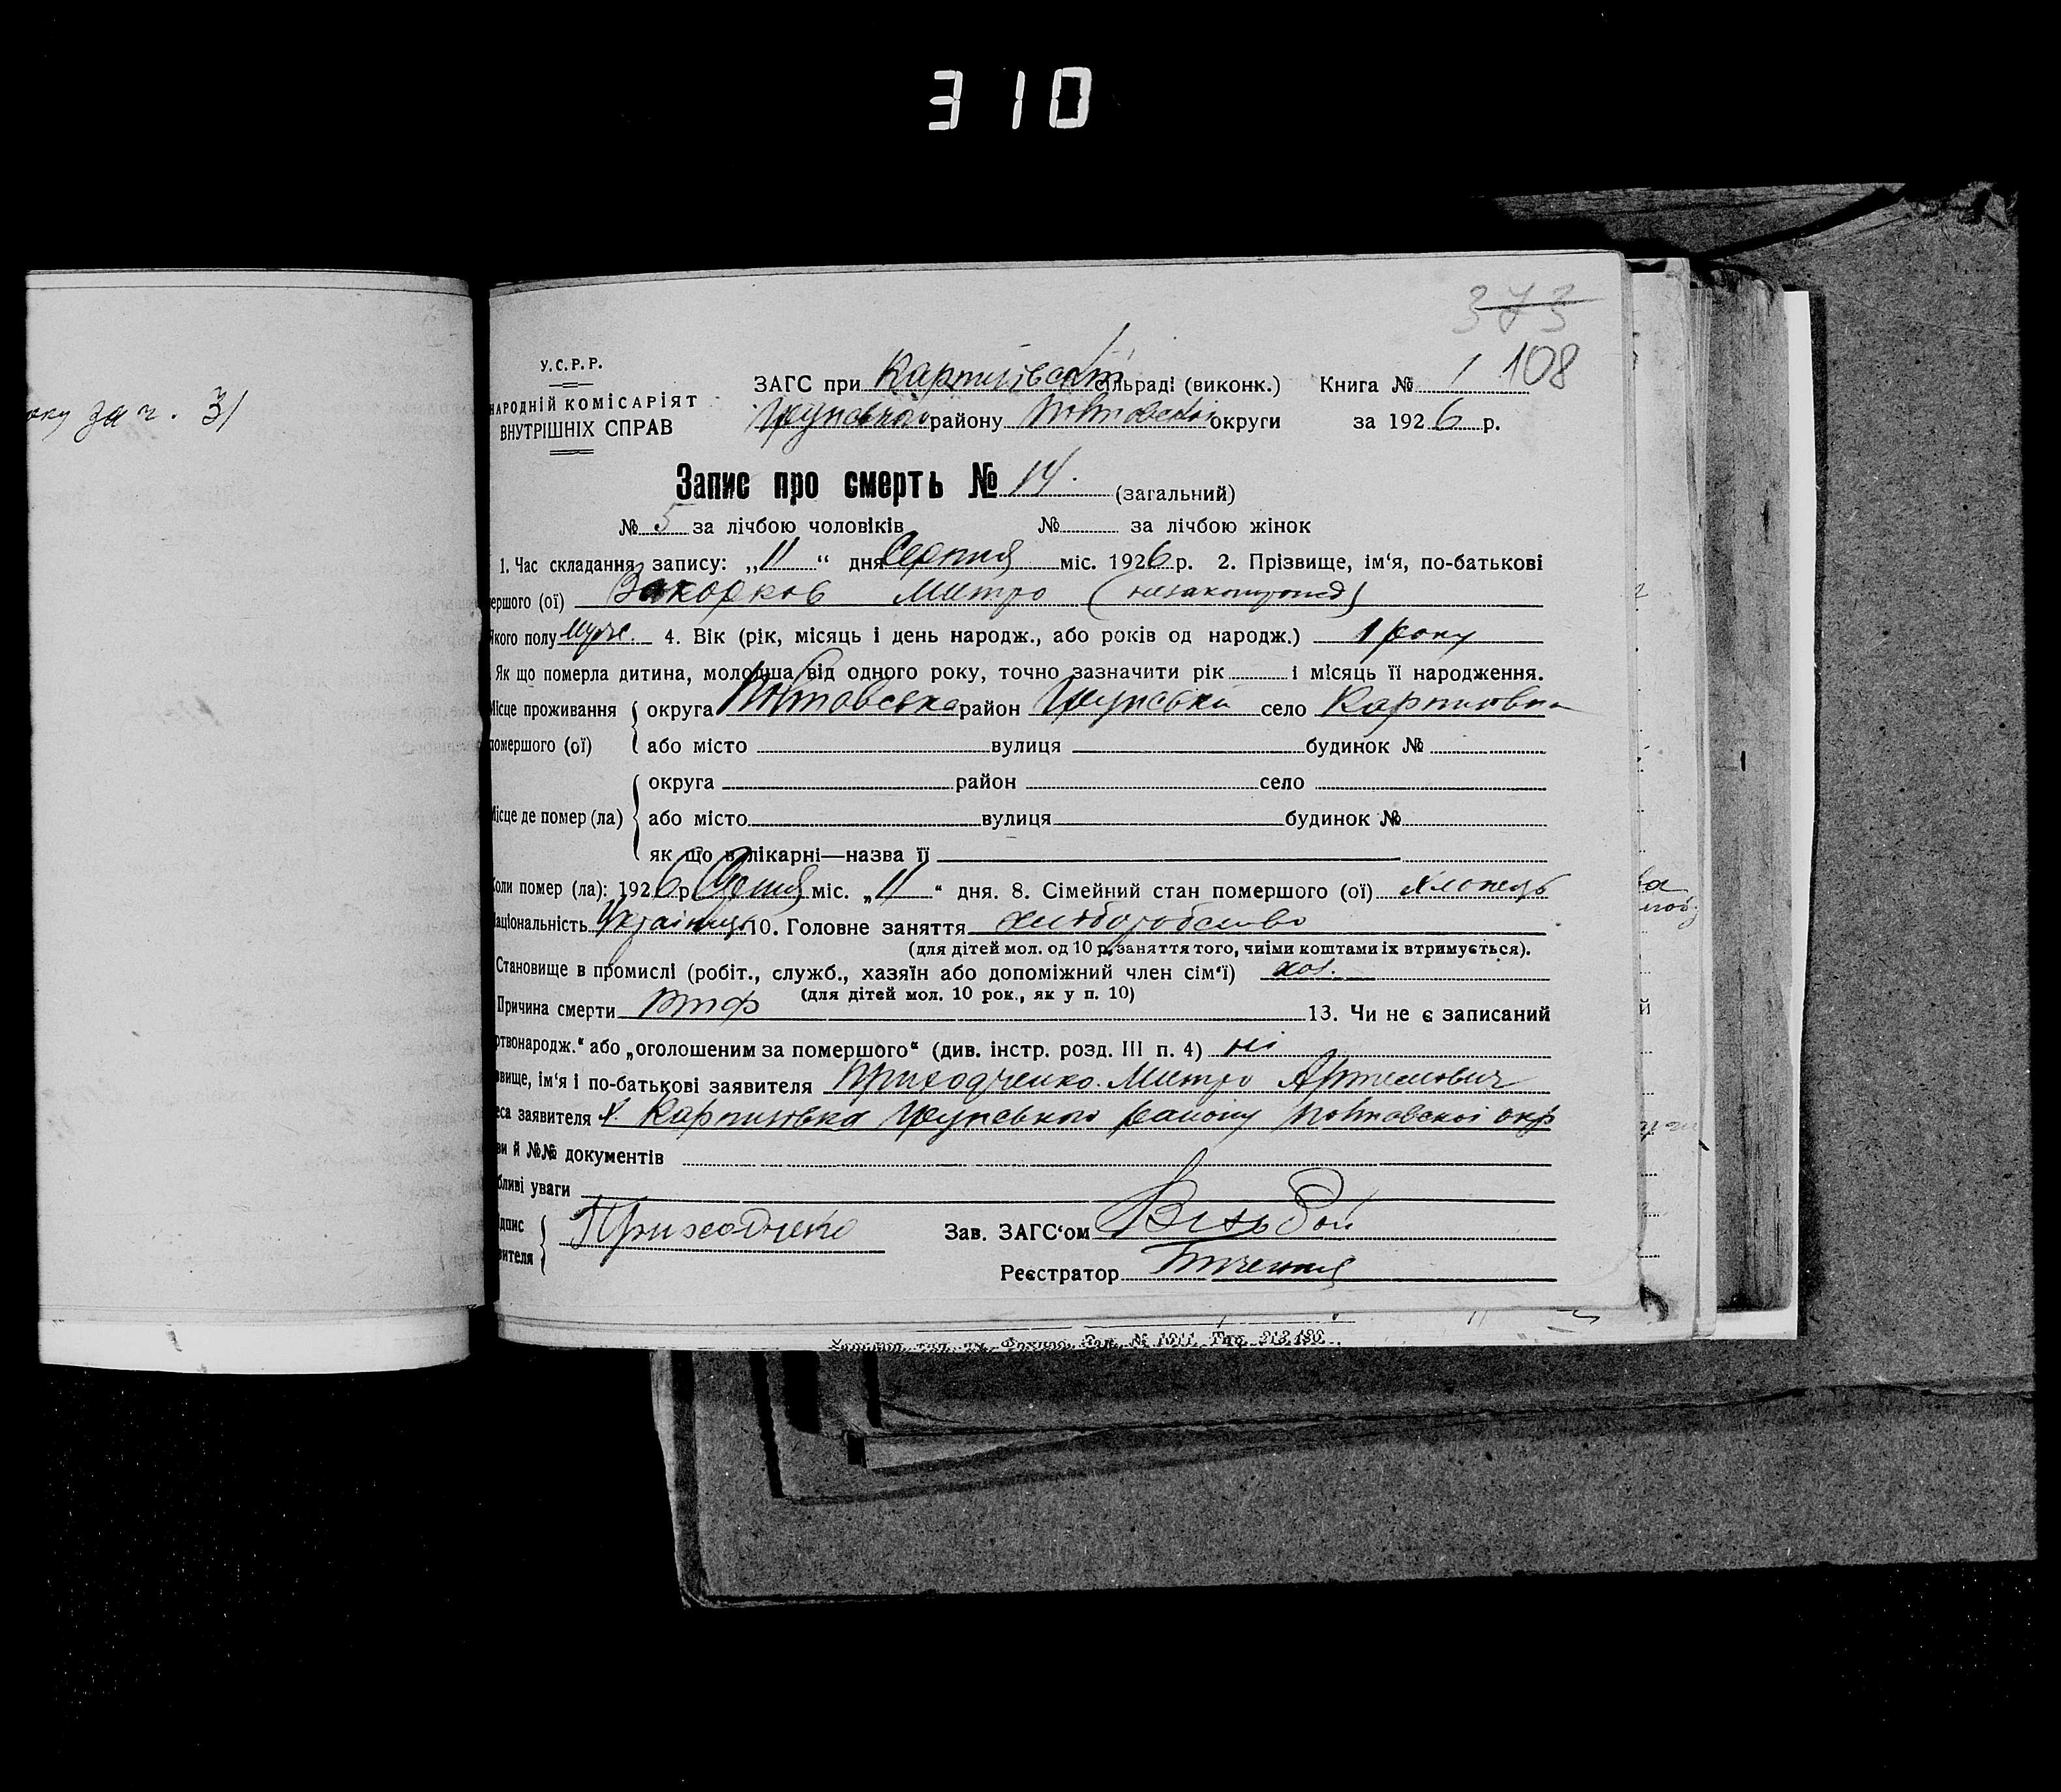 310
373
108
оку за ч. 31
У.С.Р.Р.
НАРОДНІЙ КОМІСАРІЯТ
ВНУТРІШНІХ СПРАВ
ЗАГС при Карпилівській сільраді (виконк.) Книга № 1
району Полтавської округи за 1926 р.
Запис про смерть № 14. (загальний)
№ 5 за лічбою чоловіків № за лічбою жінок
1. Час складання запису: „11“ дня Серпня міс. 1926 р. 2. Прізвище, ім‘я, по-батькові
ершого (ої) Митро
якого полу муж. 4. Вік (рік, місяць і день народж., або років од народж.) 1 року
Як що померла дитина, молодша від одного року, точно зазначити рік і місяць її народження.
Місце проживання округа Полтавська район село
помершого (ої) або місто вулиця будинок №
округа район село
Місце де помер (ла) або місто вулиця будинок №
як що в лікарні—назва її
Коли помер (ла): 1926 р. Серпня міс. „11“ дня. 8. Сімейний стан помершого (ої) хлопець
Національність Українець 10. Головне заняття хліборобство
(для дітей мол. од 10 р. заняття того, чиїми коштами їх втримується).
Становище в промислі (робіт., служб., хазяїн або допоміжний член сім‘ї)
(для дітей мол. 10 рок., як у п. 10)
Причина смерти 13. Чи не є записаний
ртвонародж.“ або „оголошеним за помершого“ (див. інстр. розд. III п. 4) ні
вище, ім‘я і по-батькові заявителя Приходченко Митро Артемович
еса заявителя х. району Полтавської окр
ви й №№ документів
бливі уваги
ідпис Приходченко Зав. ЗАГС‘ом
вителя
Реєстратор